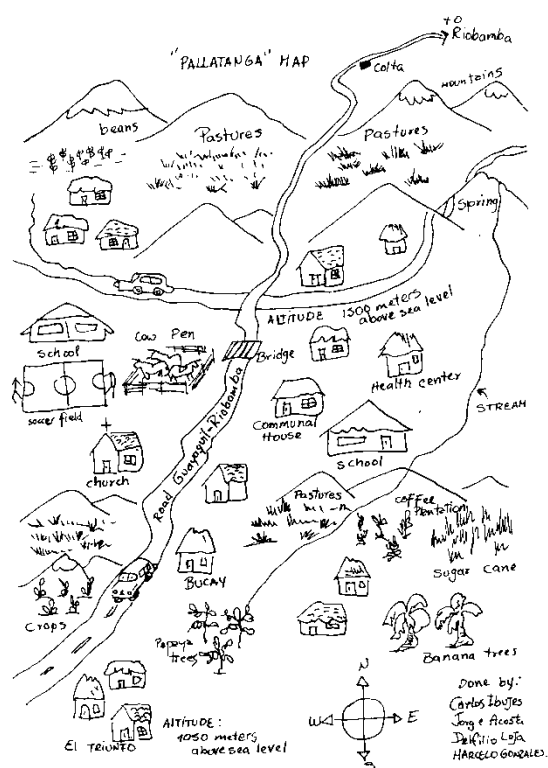 "PALLATANGA" MAP
TO
Riobamba
Colta
MOUNTAINS
beans
Pastures
Pastures
Spring
ALTITUDE 1300 meters
above sea level
School
Cow Pen
Bridge
Health center
soccer field
Communal
House
STREAM
School
church
Road Guayaquil-Riobamba
Pastures
coffee
plantation
Sugar cane
BUCAY
Crops
Papaya
trees
Banana trees
N
W
E
S
EL TRIUNFO
ALTITUDE:
1050 meters
above sea level
Done by:
Carlos Ibujes
Jorge Acosta
Loja
MARCELO GONZALES.